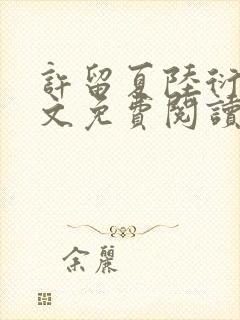 許留夏陸衍
文免費閱讀
余麗